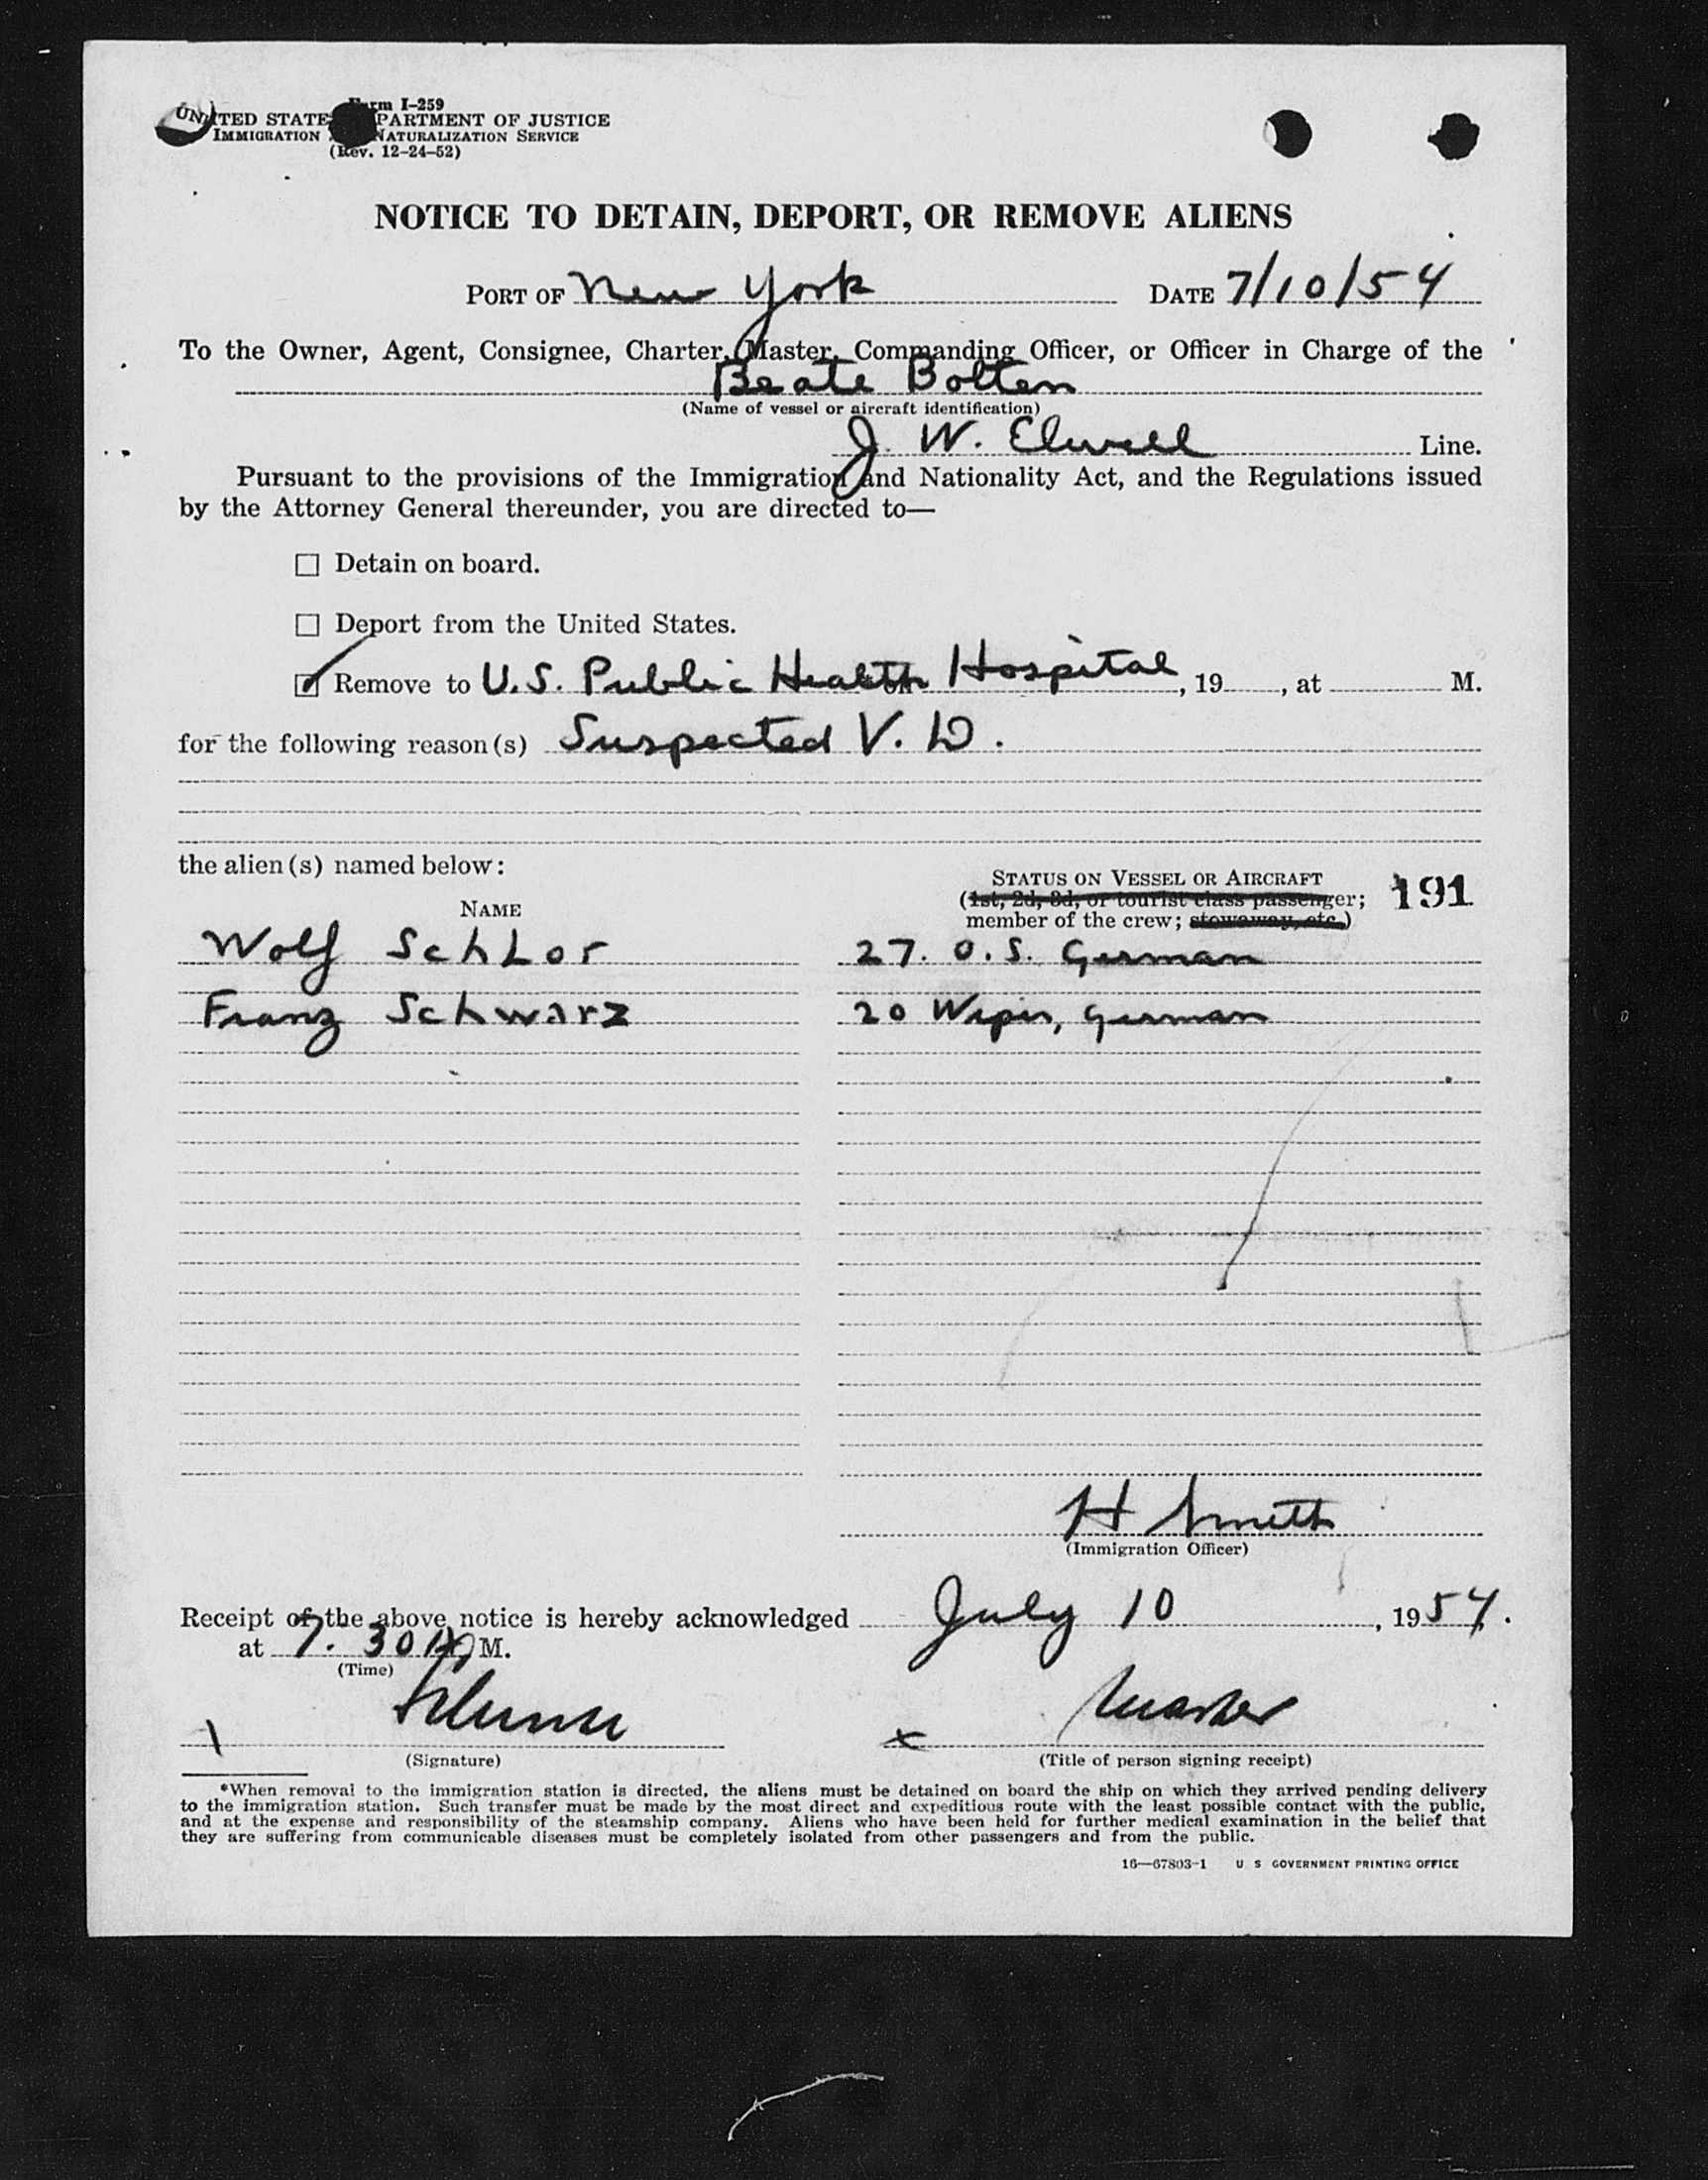 Form I-259
UNITED STATES DEPARTMENT OF JUSTICE
IMMIGRATION AND NATURALIZATION SERVICE
(Rev. 12-24-52)
NOTICE TO DETAIN, DEPORT, OR REMOVE ALIENS
PORT OF New York DATE 7/10/54
To the Owner, Agent, Consignee, Charter, Master, Commanding Officer, or Officer in Charge of the
Beate Bolten
(Name of vessel or aircraft identification)
J. W. Elwell Line.
Pursuant to the provisions of the Immigration and Nationality Act, and the Regulations issued
by the Attorney General thereunder, you are directed to—
☐ Detain on board.
☐ Deport from the United States.
☑ Remove to U.S. Public Health Hospital, 19 , at M.
for the following reason(s) Suspected V. D.
the alien(s) named below:
STATUS ON VESSEL OR AIRCRAFT
(1st, 2d, 3d, or tourist class passenger; 191
NAME
member of the crew; stowaway, etc.)
Wolf Schlor 27. O.S. German
Franz Schwarz 20 Wiper, German
H Smith
(Immigration Officer)
Receipt of the above notice is hereby acknowledged July 10, 1954.
at 7.30 A M.
(Time)
Master
(Signature) (Title of person signing receipt)
*When removal to the immigration station is directed, the aliens must be detained on board the ship on which they arrived pending delivery
to the immigration station. Such transfer must be made by the most direct and expeditious route with the least possible contact with the public,
and at the expense and responsibility of the steamship company. Aliens who have been held for further medical examination in the belief that
they are suffering from communicable diseases must be completely isolated from other passengers and from the public.
16—67803-1 U S GOVERNMENT PRINTING OFFICE